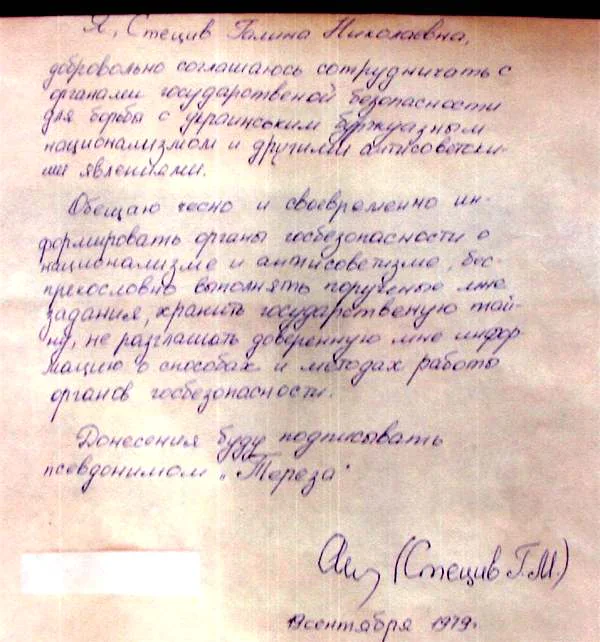 Я, Стецив Галина Николаевна,
добровольно соглашаюсь сотрудничать с
органами государственой безопасности
для борьбы с украинським буржуазным
национализмом и другими антисоветски-
ми явлениями.
Обещаю чесно и своевременно ин-
формировать органы госбезопасности о
национализме и антисоветизме, бес-
прекословно выполнять порученые мне
задания, хранить государственую тай-
ну, не разглашать доверенную мне инфор
мацию о способах и методах работы
органов госбезопасности.
Донесения буду подписывать
псевдонимом „Тереза"
(Стецив Г.М.)
сентября 1979г.